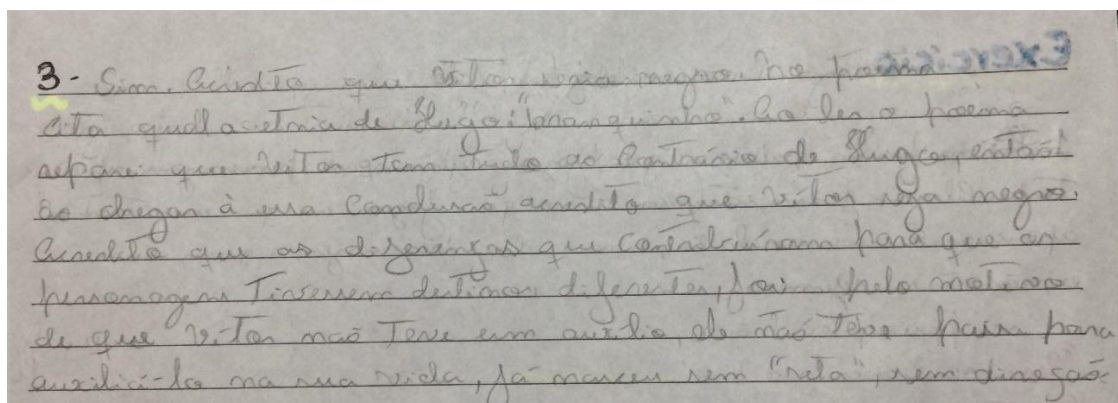 3 - Sim. Acredito que Vitor seja negro. No poema
cita qual a etnia de Hugo: "branquinho". Ao ler o poema
reparei que Vitor tem tudo ao contrário de Hugo, então
ao chegar à essa conclusão acredito que Vitor seja negro.
Acredito que as diferenças que contribuíram para que os
personagens tivessem destinos diferentes, foi pelo motivo
de que Vitor não teve um auxílio, ele não teve pais para
auxiliá-lo na sua vida, já nasceu sem "reta", sem direção.